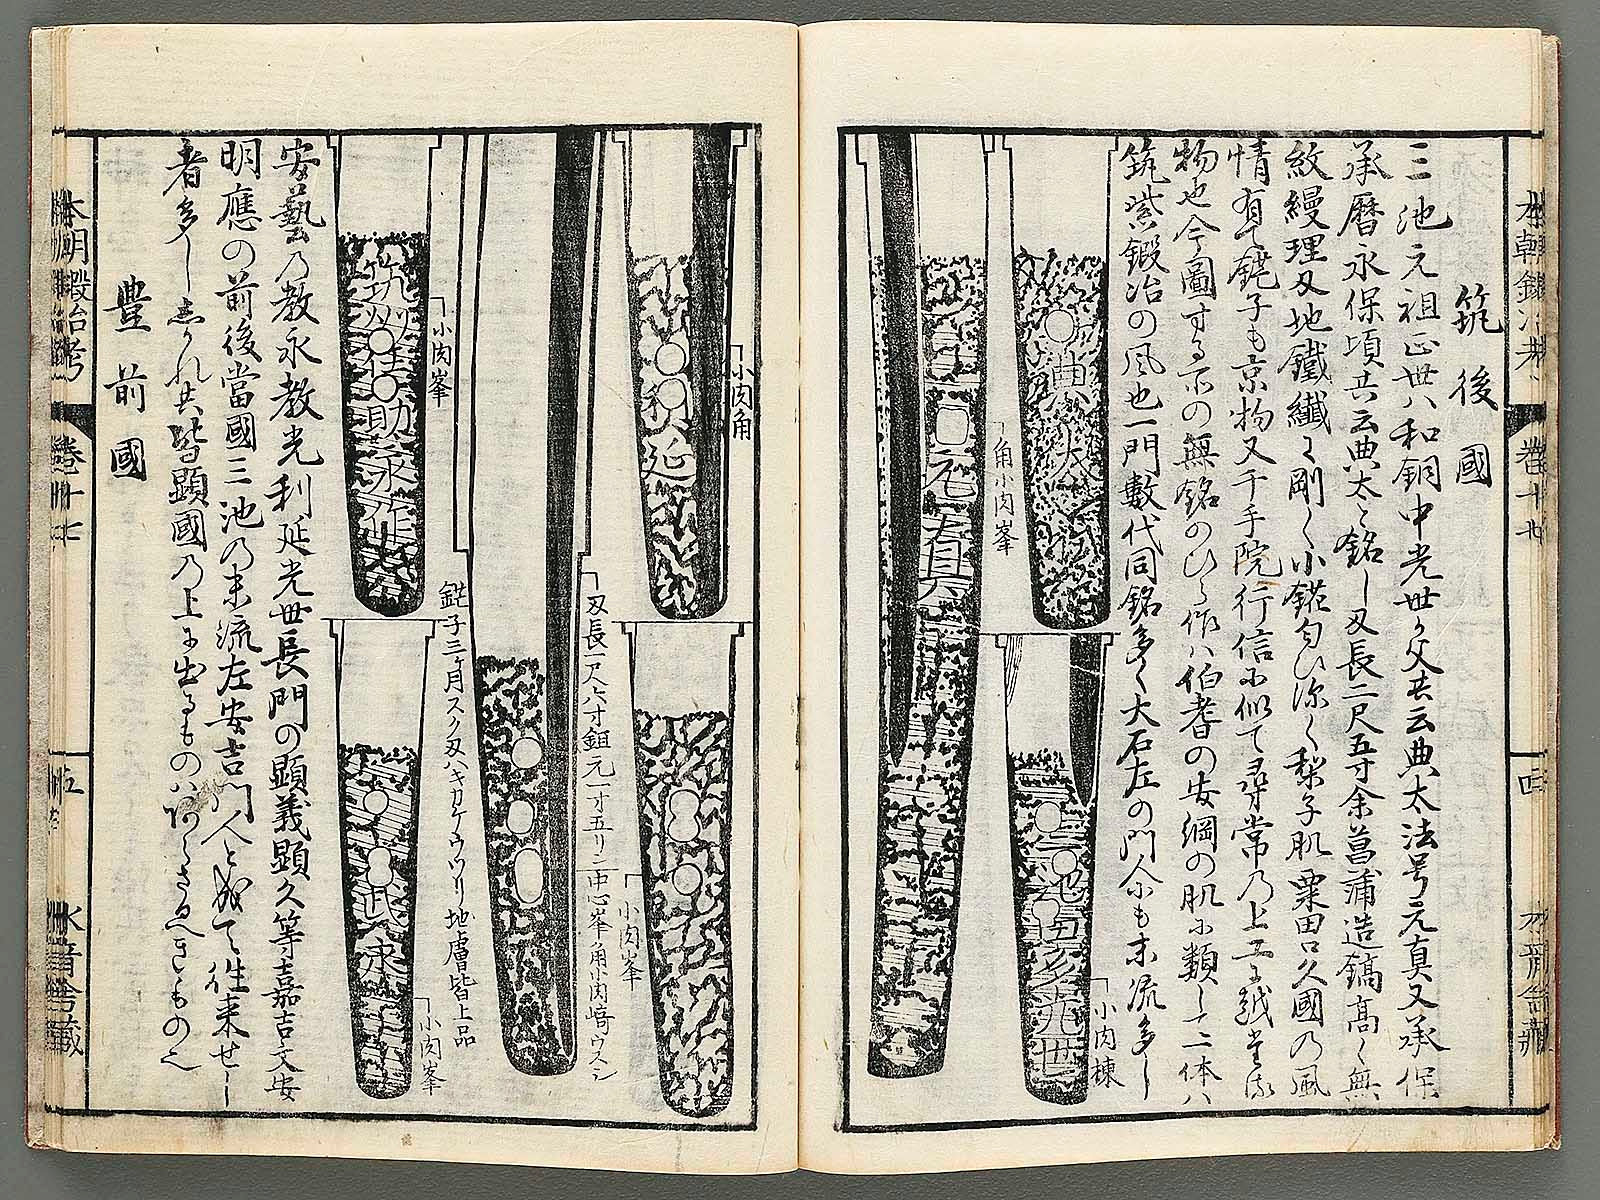 筑後國
三池元祖正世ハ和銅中光世ヶ父共云典太法号元真又承保
承暦永保頃共云典太と銘し刄長二尺五寸余菖蒲造鎬高く無
紋縵理刄地鐵纎て剛く小錵匂ひ深く梨子肌粟田口久國の風
情有て鋩子も京物又千手院行信小似て尋常乃上工と
物也今圖する所の無銘のひら作ハ伯耆の安綱の肌小類し十二体ハ
筑紫鍛冶の風也一門數代同銘多く大石左の門人小も末流多し
典太
角小肉峯
元真
三池
光世
小肉棟
卷十七
四
小肉角
延
小肉峯
刄長一尺六寸鉏元一寸五リン中心峯角小肉﨑ウスシ
筑州住助永作
小肉峯
鋩子三ヶ月スク刄ハキカケウツリ地膚皆上品
武永
小肉峯
安藝乃教永教光利延光世長門の顕義顕久等嘉吉文安
明應の前後當國三池乃末流左安吉門人と成て往来せし
者多し然れ共皆顕國乃上に出るものハあらさるへきものと
豊前國
本朝鍛冶考
卷十七
五
水音舎藏